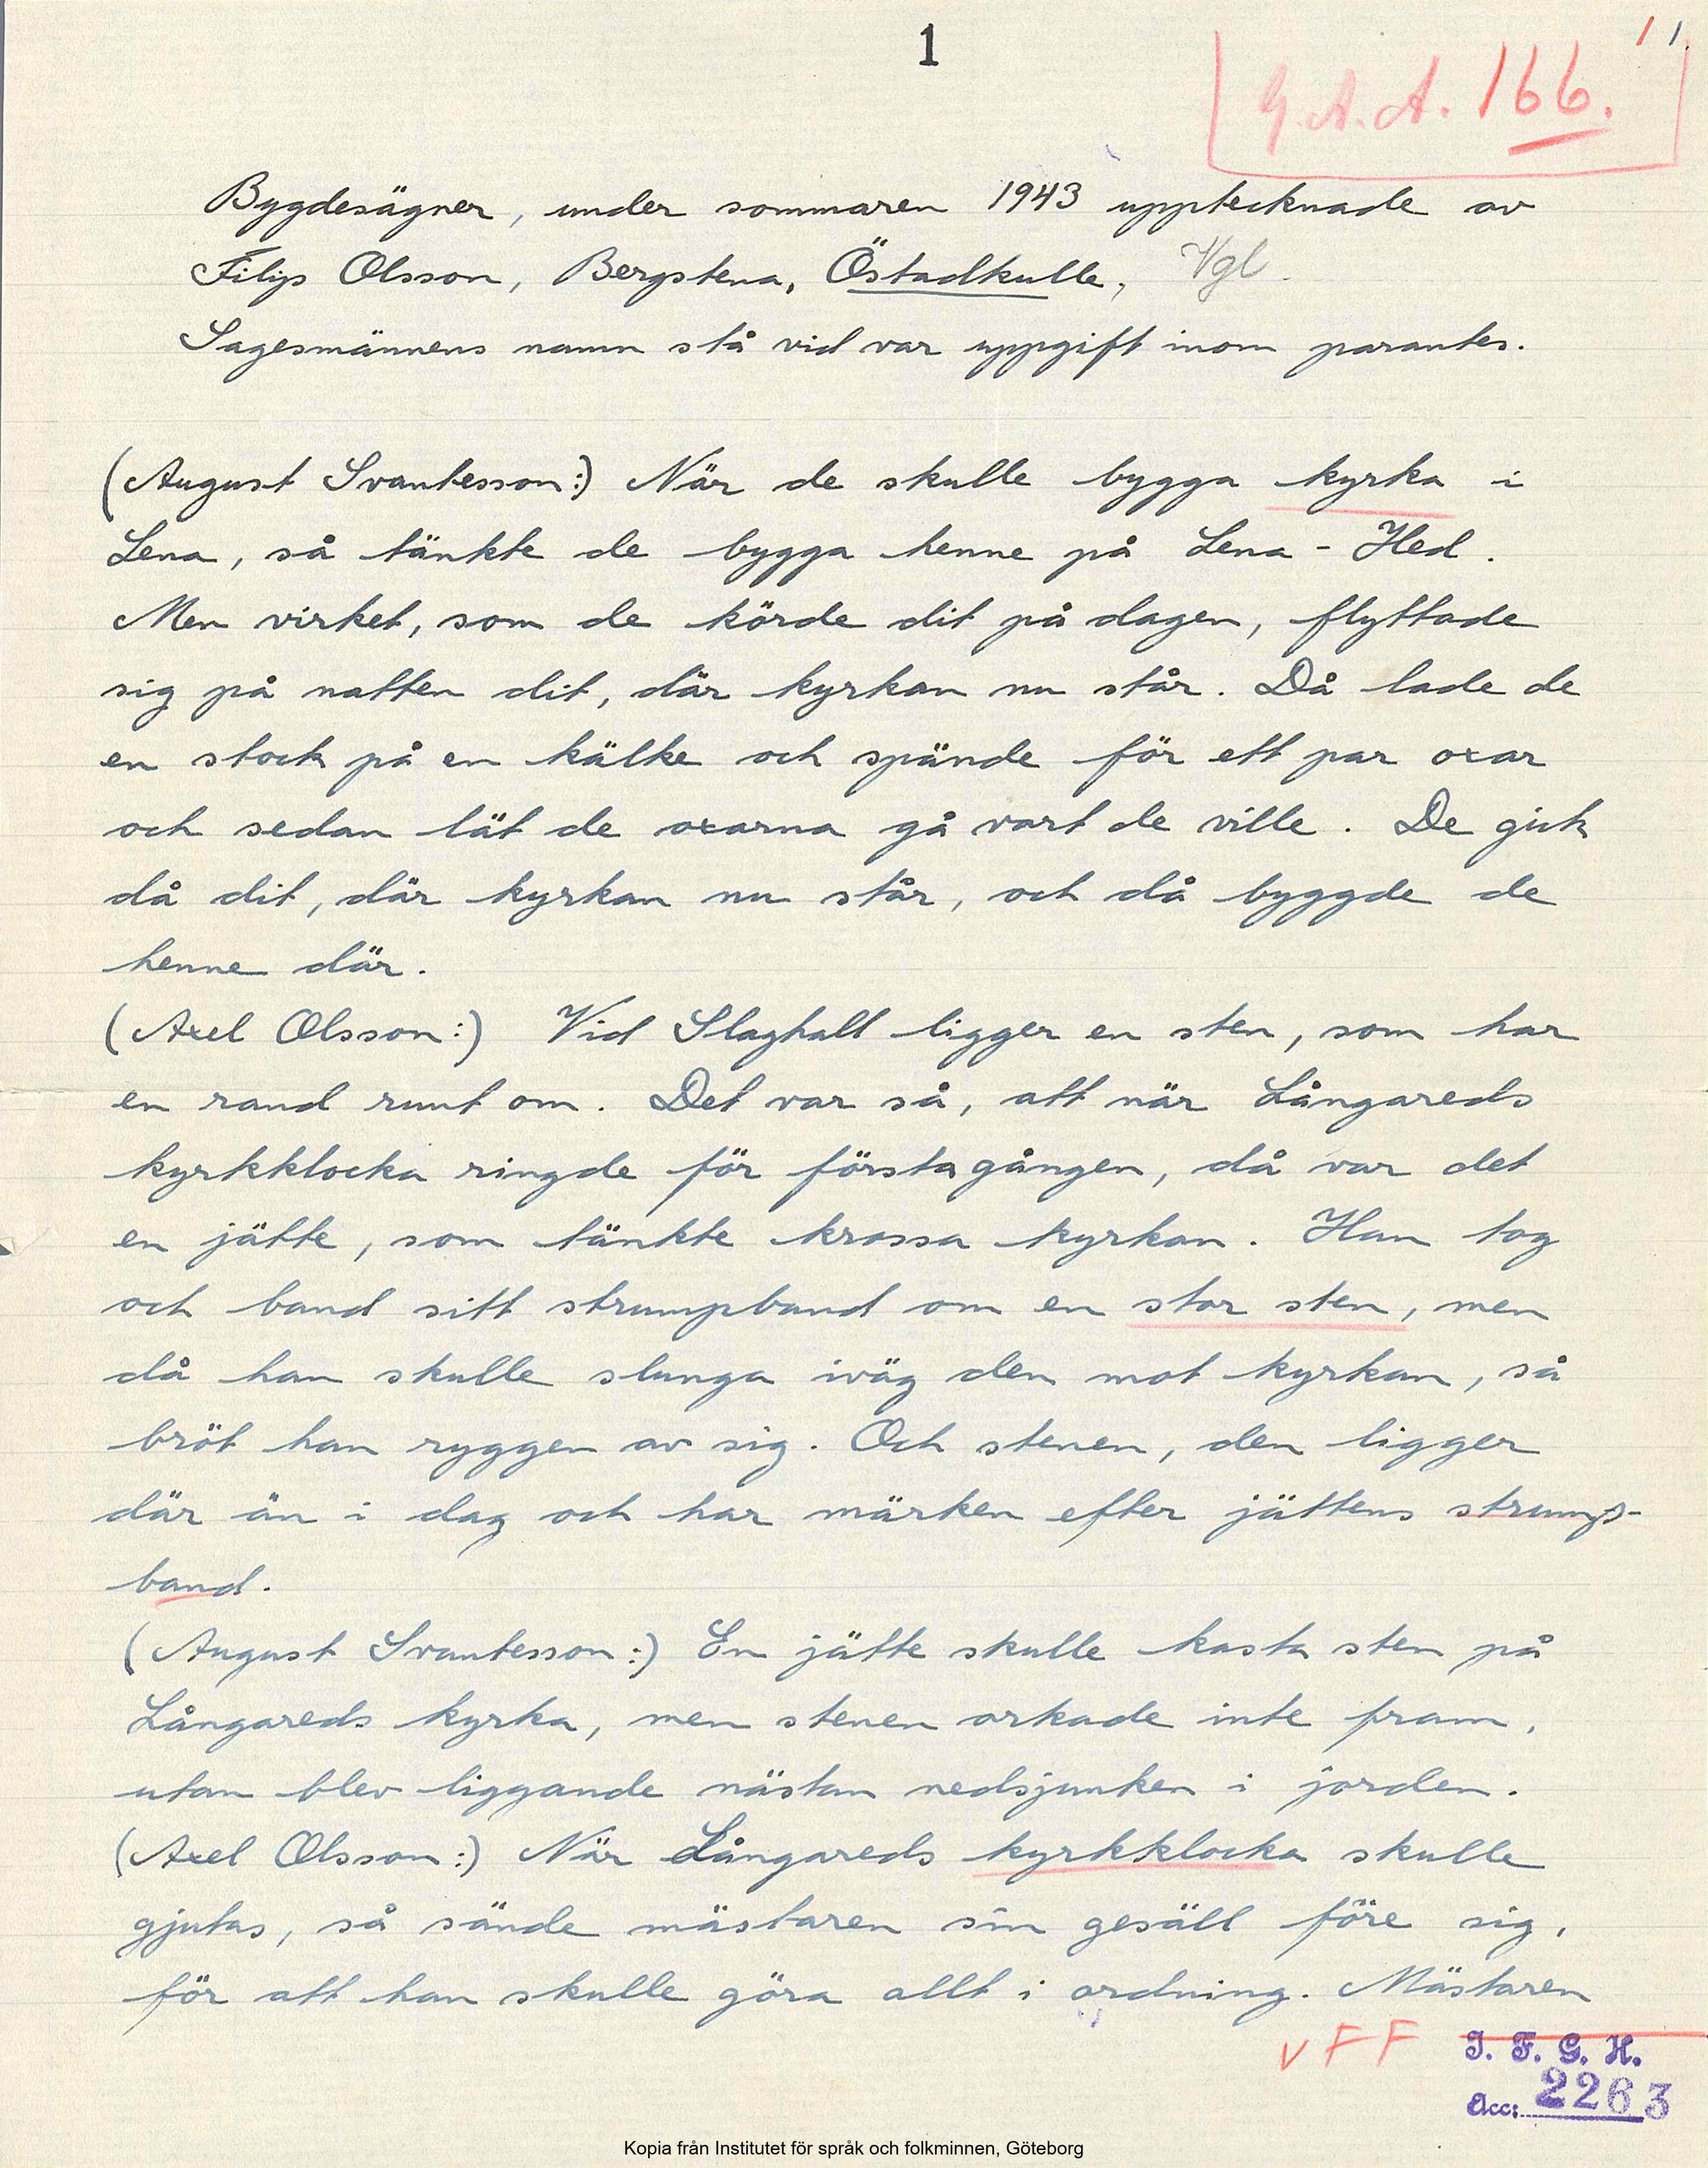 1
1 1.
G.A.A. 166.
Bygdesägner, under sommaren 1943 upptecknade av
Filip Olsson, Bergstena, Östadkulle, Vgl.
Sagesmännens namn stå vid var uppgift inom parantes.
(August Svantesson:) När de skulle bygga kyrka i
Lena, så tänkte de bygga henne på Lena-Hed.
Men virket, som de körde dit på dagen, flyttade
sig på natten dit, där kyrkan nu står. Då lade de
en stock på en kälke och spände för ett par oxar
och sedan lät de oxarna gå vart de ville. De gick
då dit, där kyrkan nu står, och då byggde de
henne där.
(Axel Olsson:) Vid Slaghall ligger en sten, som har
en rand runt om. Det var så, att när Långareds
kyrkklocka ringde för första gången, då var det
en jätte, som tänkte krossa kyrkan. Han tog
och band sitt strumpband om en stor sten, men
då han skulle slunga iväg den mot kyrkan, så
bröt han ryggen av sig. Och stenen, den ligger
där än i dag och har märken efter jättens strump-
band.
(August Svantesson:) En jätte skulle kasta sten på
Långareds kyrka, men stenen orkade inte fram,
utan blev liggande nästan nedsjunken i jorden.
(Axel Olsson:) När Långareds kyrkklocka skulle
gjutas, så sände mästaren sin gesäll före sig,
för att han skulle göra allt i ordning. Mästaren
VFF
I. F. G. H.
Acc: 2263
Kopia från Institutet för språk och folkminnen, Göteborg